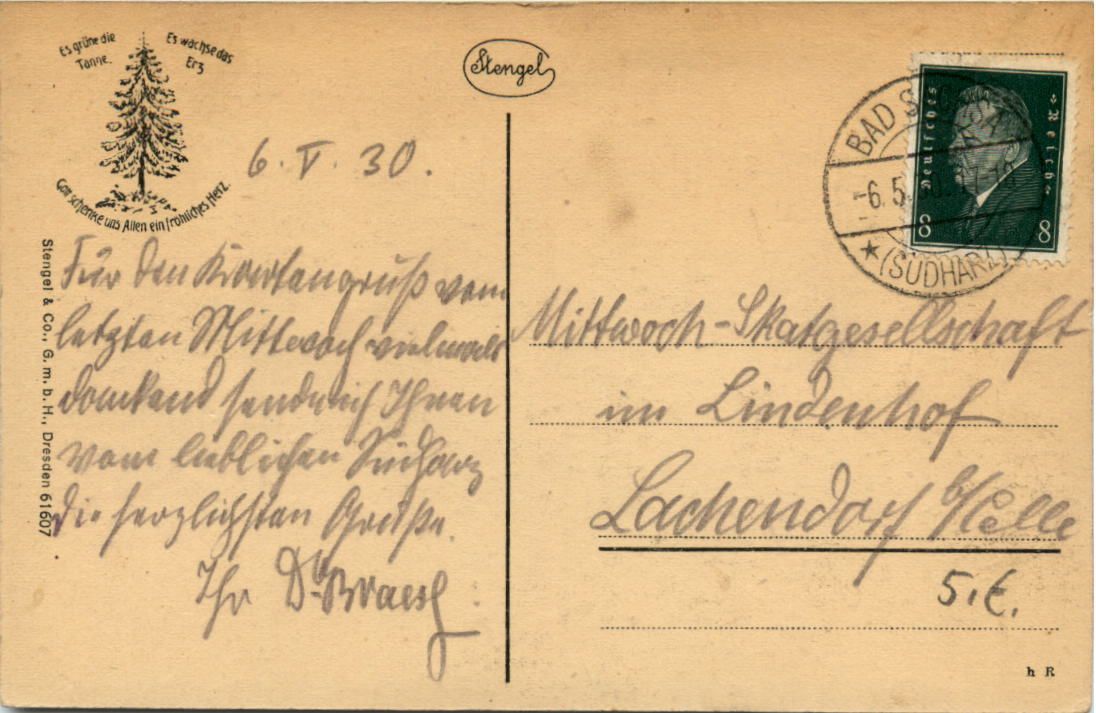 Es grüne die
Tanne.
Es wachse das
Erz
Gott schenke uns Allen ein fröhliches Herz.
Stengel
BAD
-6.5.
(SÜDHARZ)
Deutsches
Reich
8 8
6. V. 30.
Für den Kartengruß vom
letzten Mittwoch vielmals
dankend sendet ich Ihnen
vom lieblichen Südharz
die herzlichsten Grüße.
Ihr Dr.
Mittwoch-Skatgesellschaft
im Lindenhof
Lachendorf b/Celle
5.€.
Stengel & Co., G.m.b.H., Dresden 61607
h R